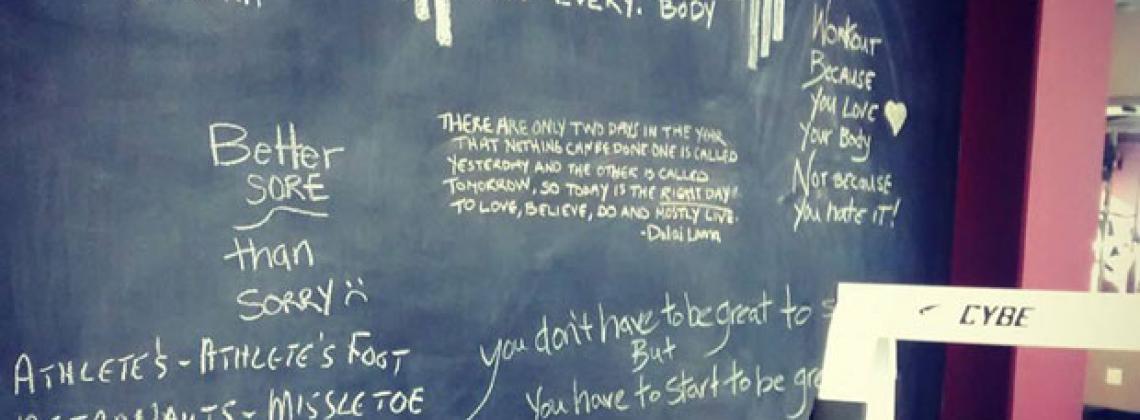 EVERY. BODY
Workout
Because
You Love
Your Body
Not because
you hate IT!
Better
SORE
than
SORRY
THERE ARE ONLY TWO DAYS IN THE YEAR
THAT NOTHING CAN BE DONE ONE IS CALLED
YESTERDAY AND THE OTHER IS CALLED
TOMORROW, SO TODAY IS THE RIGHT DAY
TO LOVE, BELIEVE, DO AND MOSTLY LIVE.
-Dalai Lama
you don't have to be great to
But
You have to start to be
ATHLETE'S - ATHLETE'S FOOT
MISSLETOE
CYBE